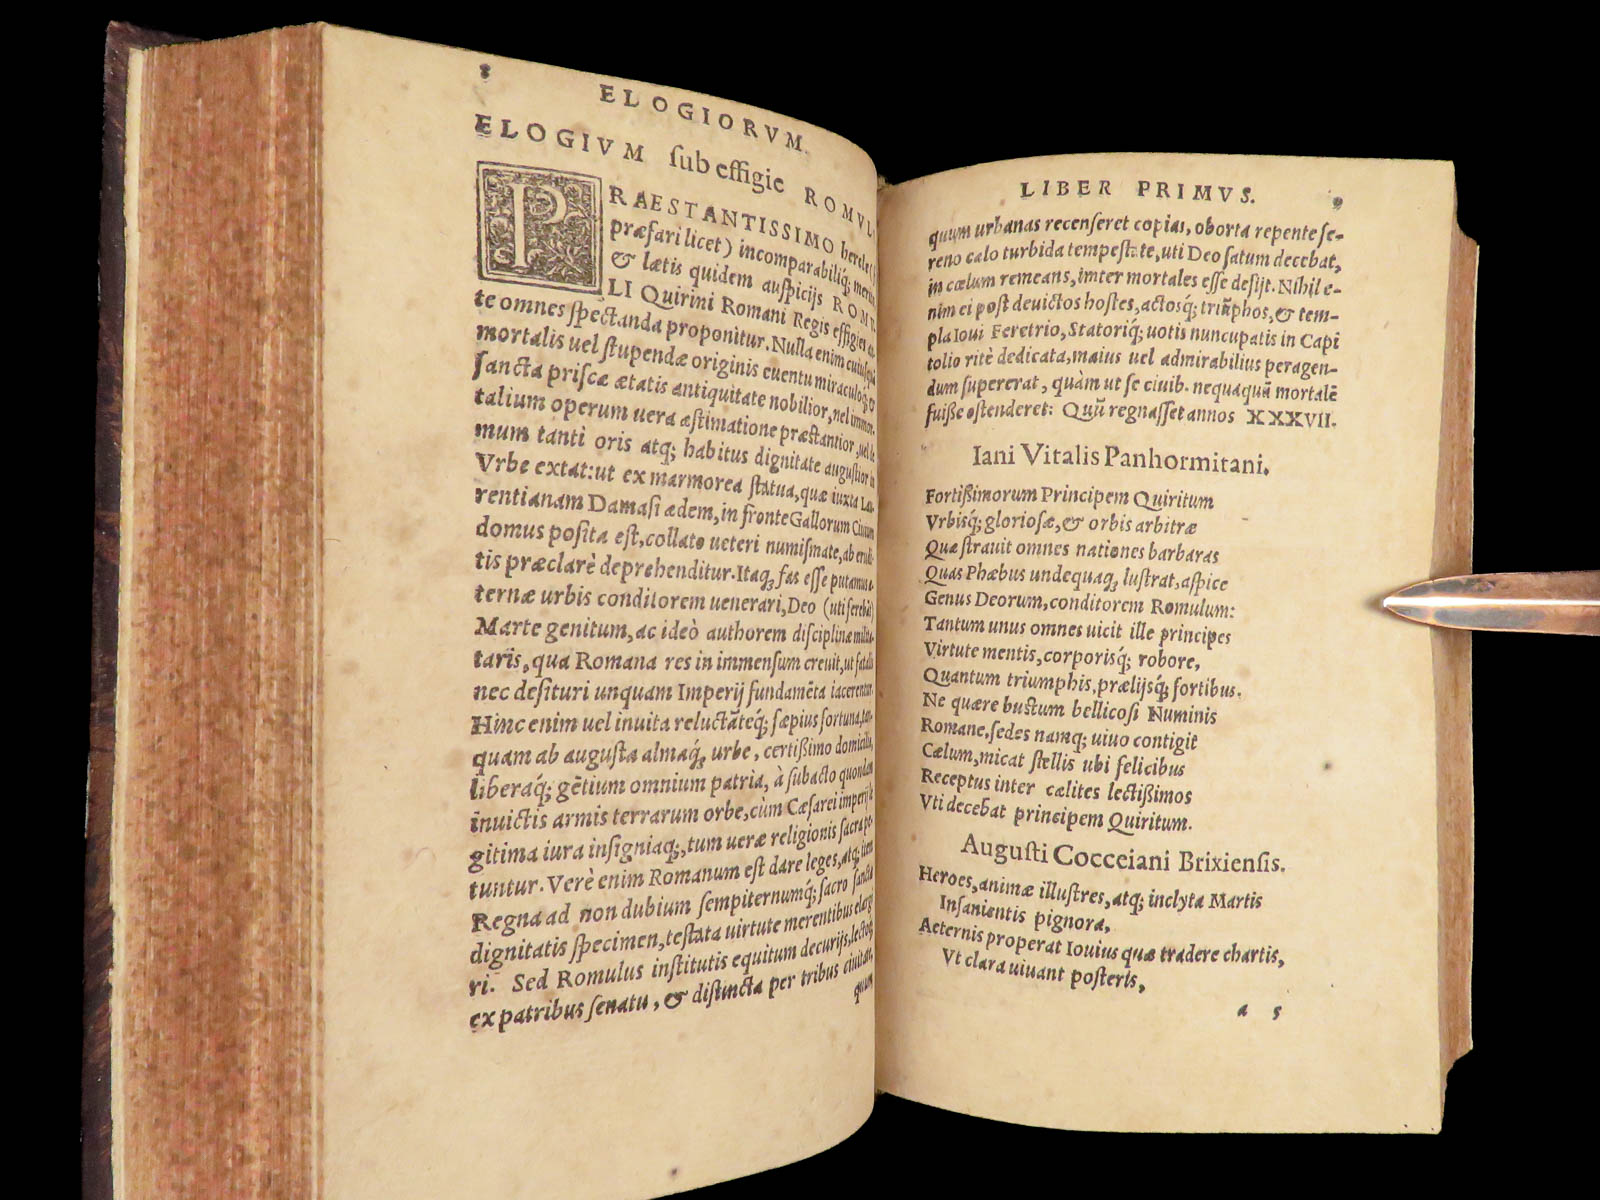 8
ELOGIORVM.
ELOGIVM sub effigie ROMVLI
PRAESTANTISSIMO hercle (si
præfari licet) incomparabiliq́; merito
& lætis quidem auspicijs ROMV
LI Quirini Romani Regis effigies
te omnes spectanda proponitur. Nulla enim cuiusquã
mortalis uel stupendæ originis euentu miraculoq́; &
sancta priscæ ætatis antiquitate nobilior, uel immor-
talium operum uera æstimatione præstantior, uel de
mum tanti oris atq; habitus dignitate augustior in
Vrbe extat: ut ex marmorea statua, quæ iuxta Lau-
rentianam Damasi ædem, in fronte Gallorum Ciuium
domus posita est, collato ueteri numismate, ab erudi-
tis præclarè deprehenditur. Itaq; fas esse putamus æ-
ternæ urbis conditorem uenerari, Deo (uti ferebãt)
Marte genitum, ac ideò authorem disciplinæ milita-
taris, qua Romana res in immensum creuit, ut fatalia
nec desituri unquam Imperij fundamẽta iacerentur.
Hinc enim uel inuita reluctãteq́; sæpius fortuna, tan-
quam ab augusta almaq́; urbe, certißimo domicilio,
liberaq́; gẽtium omnium patria, à subacto quondam
inuictis armis terrarum orbe, cùm Cæsarei imperij le
gitima iura insigniaq́;, tum ueræ religionis sacra pe-
tuntur. Verè enim Romanum est dare leges, atq; item
Regna ad non dubium sempiternumq́; sacro sanctæ
dignitatis specimen, testata uirtute merentibus elargi
ri. Sed Romulus institutis equitum decurijs, lectoq́;
ex patribus senatu, & distincta per tribus ciuitate,
quum
LIBER PRIMVS. 9
quum urbanas recenseret copias, oborta repente se-
reno cælo turbida tempestate, uti Deo satum decebat,
in cælum remeans, inter mortales esse desijt. Nihil e-
nim ei post deuictos hostes, actosq́; triũphos, & tem-
pla Ioui Feretrio, Statoriq́; uotis nuncupatis in Capi
tolio ritè dedicata, maius uel admirabilius peragen-
dum supererat, quàm ut se ciuib. nequaquã mortalẽ
fuiße ostenderet: Quũ regnasset annos XXXVII.
Iani Vitalis Panhormitani.
Fortißimorum Principem Quiritum
Vrbisq́; gloriosæ, & orbis arbitræ
Quæ strauit omnes nationes barbaras
Quas Phæbus undequaq; lustrat, aspice
Genus Deorum, conditorem Romulum:
Tantum unus omnes uicit ille principes
Virtute mentis, corporisq́; robore,
Quantum triumphis, prælijsq́; fortibus.
Ne quære bustum bellicosi Numinis
Romane, sedes namq; uiuo contigit
Cælum, micat stellis ubi felicibus
Receptus inter cælites lectißimos
Vti decebat principem Quiritum.
Augusti Cocceiani Brixiensis.
Heroes, animæ illustres, atq; inclyta Martis
Insanientis pignora,
Aeternis properat Iouius quæ tradere chartis,
Vt clara uiuant posteris,
a 5